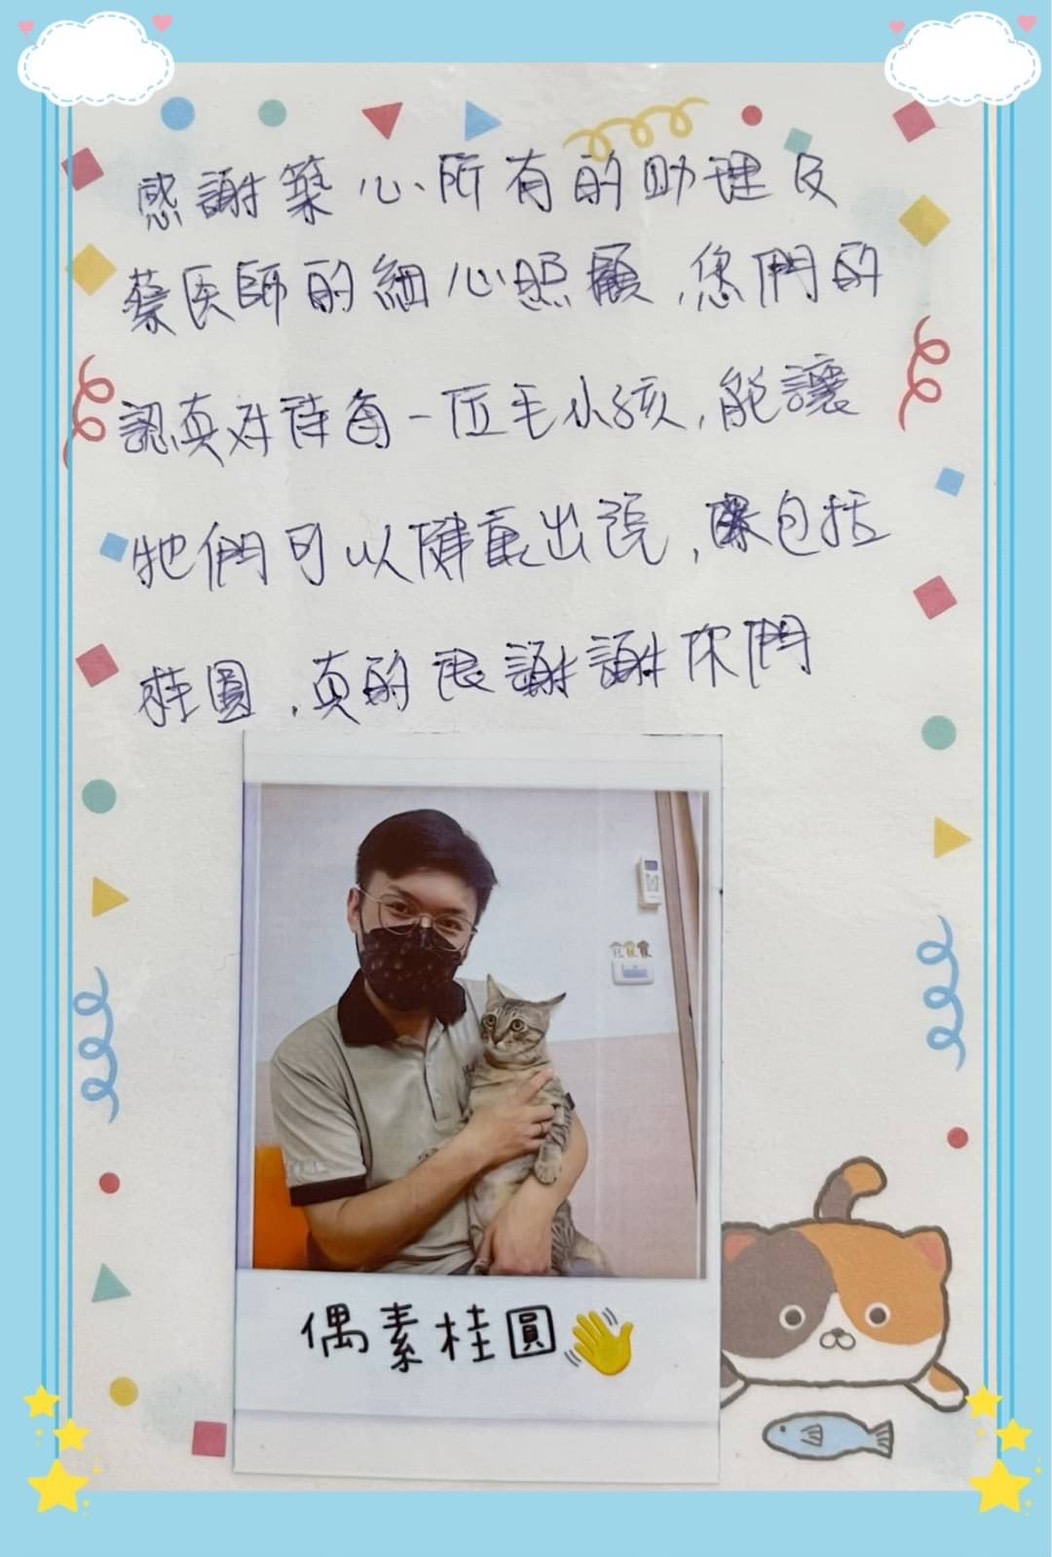 感謝築心所有的助理及
蔡医師的細心照顧,您們的
認真对待每一位毛小孩,能讓
牠們可以健康出院,包括
桂圓,真的很謝謝你們
偶素桂圓👋